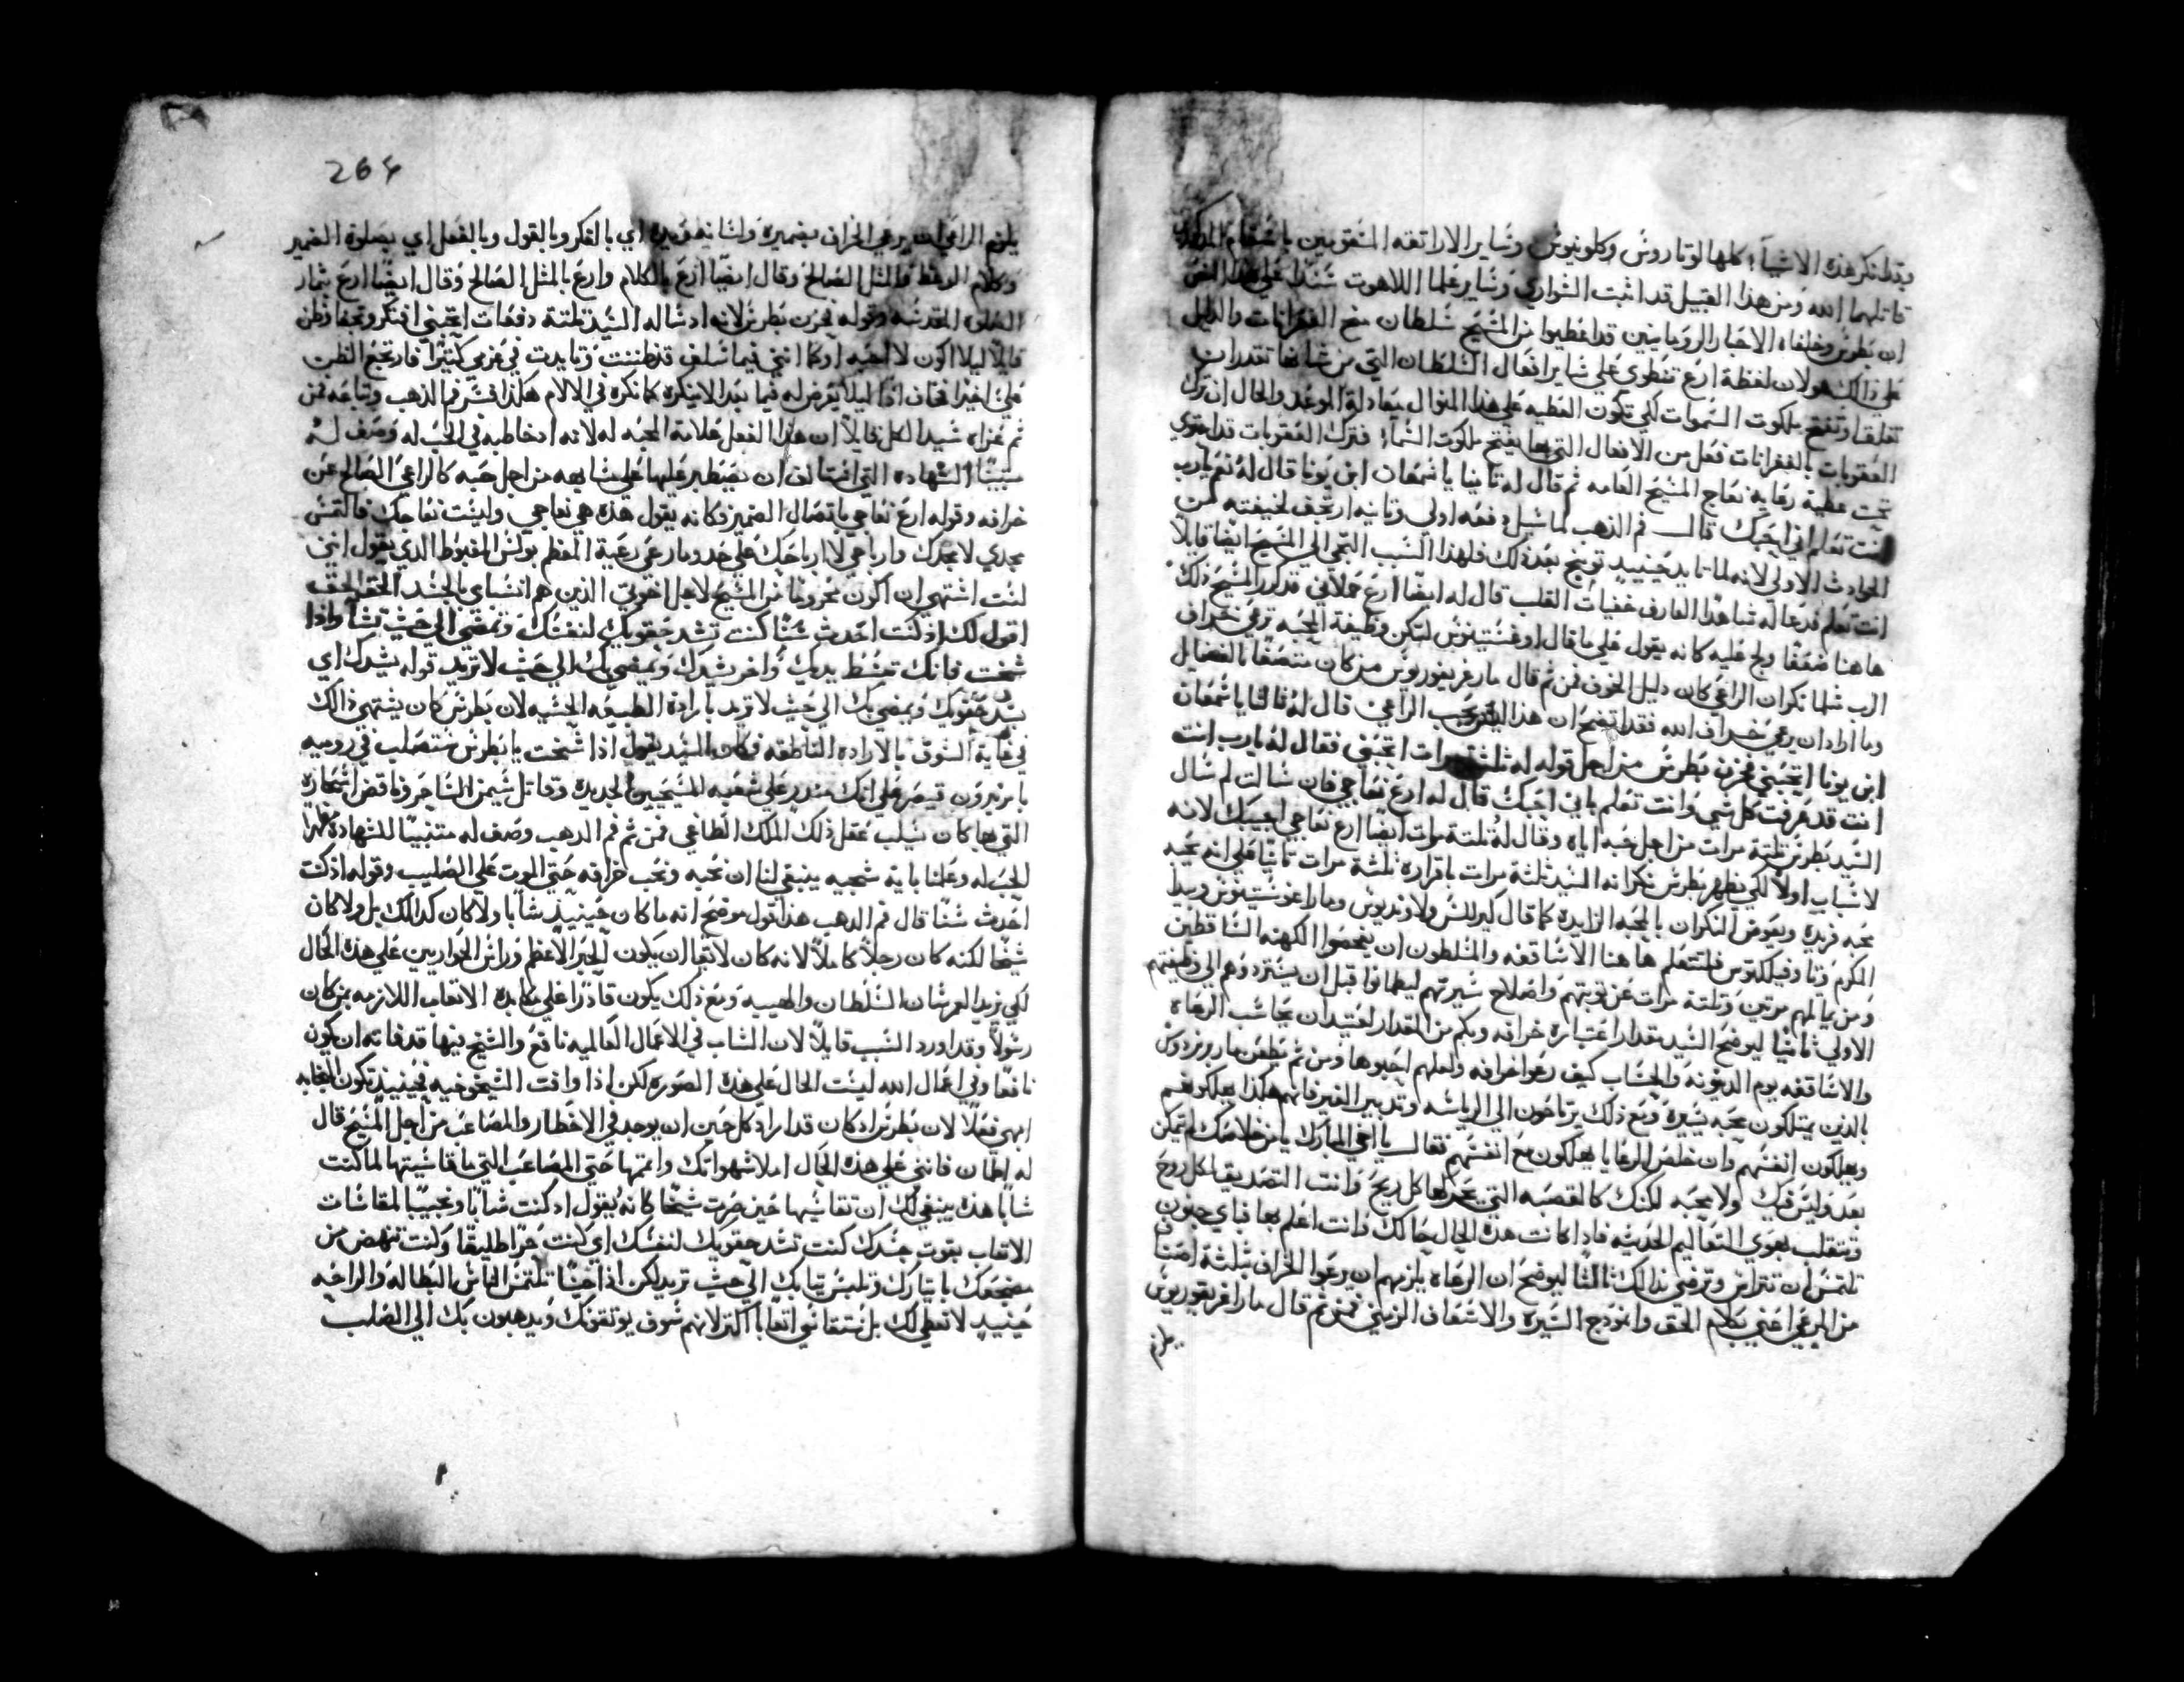 وقد انكر هذه الاشيآء كلها لوتاروس وكلوينيوس وساير الاراتقه المتقوسين باسقام
قاتلهما الله ومن هذا القبيل قد اثبت السواري وساير علما اللاهوت سندًا علي هذا النص
ان بطرس وخلفاه الاحبار الرومانيين قد اعطيوا من المسيح سلطان منح الغفرانات والدليل
علي ذالك هو لان لفظة ارع تنطوي علي ساير افعال السلطان التي من شانها تقدر ان
تغلق او تفتح ملكوت السموات لكي تكون العطيه علي هذا المنوال معادلة الموعد والحال ان ترك
العقوبات بالغفرانات فعل من الافعال التي بها يفتح ملكوت السمآء فترك العقوبات قد احتوي
تحت عطية رعاية نعاج المسيح العامه ثم قال له ثانيا يا سمعان ابن يونا قال له نعم يارب
انت تعلم اني احبك قال فم الذهب لما سيل دفعه اولي وثانيه ارتجف لخيفته من
الحوادث الاولي لانه لما تايد حينيد توبخ بعد ذلك فلهذا السبب التجي الي المسيح ايضا قايلاً
انت تعلم فدعا له شاهدًا العارف خفيات القلب قال له ايضا ارع حملاني قد كرر المسيح ذلك
ها هنا مضعفا ولج عليه كانه يقول علي ما قال اوغسطينوس لتكن وظيفة المحبه ترعي خراف
الرب كما نكران الراعي كان دليل الخوف فمن ثم قال مار غريغوريوس من كان متصفا بالفضايل
وما اراد ان يرعي خراف الله فقد اتضح ان هذا ليس يحب الراعي قال له ثالثا يا سمعان
ابن يونا اتحبني فحزن بطرس من اجل قوله له ثلثة مرات اتحبني فقال له يارب انت
انت قد عرفت كل شي وانت تعلم باني احبك قال له ارع نعاجي فان سالت لم سال
السيد بطرس ثلثة مرات من اجل حبه اياه وقال له ثلثة مرات ايضا ارع نعاجي اجيبك لانه
لاسباب اولاً لكي يطهر بطرس نكرانه السيد ثلثة مرات باقراره ثلثة مرات ثانيًا علي انه يحبه
محبه فريده ويعوض النكران بالمحبه الزايده كما قال كيرللس ولاونديوس ومار اغوستينوس وبيدا
المكرم وتاوفيلكتوس فلنتعلم ها هنا الاساقفه والمسلطون ان يفحصوا الكهنه الساقطين
ومن يماثلهم مرتين وثلثة مرات عن توبتهم واصلاح سيرتهم ليطمانوا قبل ان يستردوهم الي وظيفتهم
الاولي ثانيًا ليوضح السيد مقدار اعتباره خرافه وبكم من المقدار لعتيد ان يحاسب الرعاه
والاساقفه يوم الدينونه والحساب كيف رعوا خرافه ولعلهم احبوها ومن ثم يطعن مار برنردوس
بالذين يمتلكون محبه يسيرة ومع ذلك يرتاحون الي الرياسه وتدبير الغير فانهم هكذا يهلكونهم
ويهلكون انفسهم وان خلص الرعايا يهلكون مع انفسهم فقال يا اخي المبارك يا من خلاصك لم تمكن
بعد وليس فيك ولا محبه لكنك كالقصبه التي يحركها كل ريح وانت التصديق لكل روح
وتتقلب بهوي التعاليم الحديثه فاذا كانت هذه الحال حالك وانت اعلم بها فباي جنون
تلتمس ان تتراس وترضي بذالك ثالثًا ليوضح ان الرعاه يلزمهم ان يرعوا الخراف بثلثة اصنا
من المرعي اعني بكلام الحق وانموذج السيره والاسعاف الزمني فمن ثم قال مار اغريغوريوس
يلزم
264
يلزم الراعي ان يرعي الخراف بضميره ولسانه ويده اي بالفكر وبالقول وبالفعل اي بصلوة الضمير
وكلام الوعظ والمثل الصالح وقال ايضًا ارع بالكلام وارع بالمثل الصالح وقال ايضًا ارع بثمار
الصلوه المقدسه وقوله فحزن بطرس لانه اد ساله السيد ثلثة دفعات اتحبني افتكر وتخيفا وظن
قايلاً ليلا اكون لا احبه او كما انني فيما سلف قد ظننت وتايدت في عزمي كثيرًا فارتجع الظن
علي اخيرًا فخاف اذًا ليلا يعرض له فيما بعد الا ينكره كما نكره في الالام هكذا فسر فم الذهب وتباعه فمن
ثم عزاه سيد الكل قايلاً ان هذا الفعل علامة المحبه له لانه اد خاطبه في الحب له وصف له
سببًا الشهاده التي افتالف ان يصطبر عليها علي مشابهه من اجل حبه كالراعي الصالح عن
خرافه وقوله ارع نعاجي باتصال الضمير فكانه يقول هذه هي نعاجي وليست نعاجك فالتمس
مجدي لا مجدك وارباحي لا ارباحك علي حدو ما رعي رعية المعظم بولس المغبوط الذي يقول انني
لست اشتهي ان اكون محروما من المسيح لاجل اخوتي الذين هم انسباي بالجسد الحق الحق
اقول لك اذ كنت احدث سنًا كنت تشد حقويك لنفسك وتمضي الي حيث تشا واذا
شخت فانك تبسط يديك واخر يشدك ويمضي بك الي حيث لا تريد قوله يشدك اي
يشد حقويك ويمضي بك الي حيث لا تريد بارادة الطبيعه الحسيه لان بطرس كان يشتهي ذالك
في غاية الشوق بالاراده الناطقه فكان السيد يقول اذا شخت يا بطرس ستصلب في روميه
يا مر نيرون قيصر علي انك مندر علي شعبه المسيحيين الجديده وقاتل سيمن الساحر وناقض اسحاره
التي بها كان يسلب عقل ذلك الملك الطاغي فمن ثم فم الذهب وصف له متنبيًا للشهادة مظهرا
الحب له وعلمنا باية سجيه ينبغي لنا ان نحبه ونحب خرافه حتي الموت علي الصليب وقوله اذ كنت
احدث سنًا قال فم الذهب هذا القول موضح انه ما كان حينيذ شابا ولا كان كدالك بل ولا كان
شيخا لكنه كان رجلاً كاملاً لانه كان لايقا ان يكون الحبر الاعظم وراس الحواريين علي هذه الحال
لكي يزيد العمر شان السلطان والهيبه ومع ذلك يكون قادرًا علي مكابدة الاتعاب اللازمه بمن كان
رسولاً وقد اورد السبب قايلاً لان الشاب في الاعمال العالميه نافع والشيخ فيها قد فاته ان يكون
نافعًا وفي اعمال الله ليست الحال علي هذه الصوره لكن اذا وافت الشيخوخيه فحينيذ تكون العباده
ابهي فعلاً لان بطرس اد كان قد اراد كل حين ان يوجد في الاخطار والمصاعب من اجل المسيح قال
له اطمان فانني علي هذه الحال املا شهواتك واتمها حتي المصاعب التي ما قاسيتها لما كنت
شابا هذه ينبغي لك ان تقاسيها حين صرت شيخًا كانه يقول اد كنت شابًا ومحببًا لمقاسات
الاتعاب بقوت جسدك كنت تشد حقويك لنفسك اي كنت حرًا طليقا وكنت تنهض من
مضجعك باتيارك وتلبس ثيابك الي حيث تريد لكن اذا حينًا تلتمس الناس البطاله والراحه
حينيد لا تعطي لك بل ستقاسي اتعابا اكثر لانهم سوف يوثقونك ويدهبون بك الي الصلب